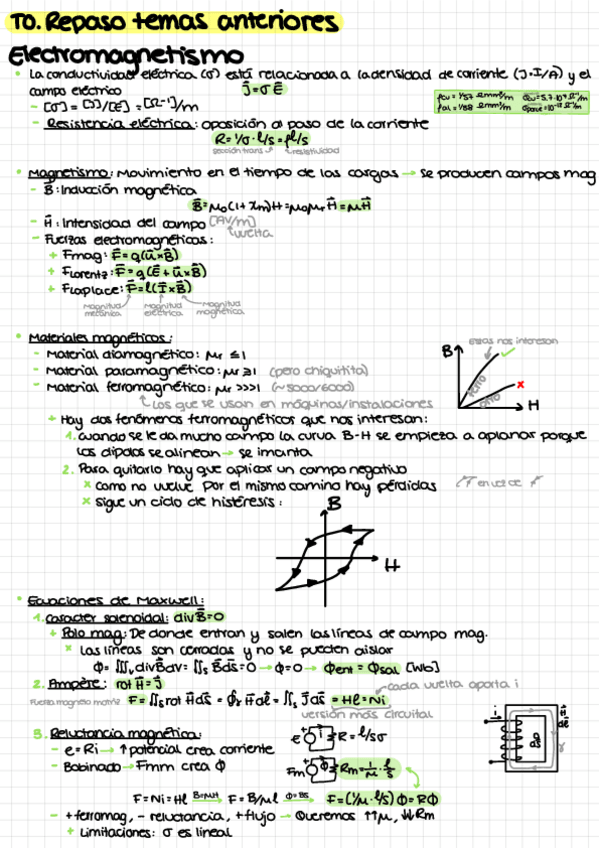 T0. Repaso temas anteriores
Electromagnetismo
• La conductividad eléctrica (σ) está relacionada a la densidad de corriente (J=I/A) y el
campo eléctrico J=σE
- [σ]=[J]/[E]=[Ω⁻¹]/m
ρcu = 1/57 Ωmm²/m
ρal = 1/38 Ωmm²/m
- Resistencia eléctrica: oposición al paso de la corriente
R=1/σ·l/s=ρl/s
sección transv resistividad
• Magnetismo: Movimiento en el tiempo de las cargas → se producen campos mag
- B: Inducción magnética
B=μ₀(1+Xm)H=μ₀μrH=μH
- H: Intensidad del campo [AV/m]
vuelta
- Fuerzas electromagnéticas:
+ Fmag: F=q(u×B)
+ Florentz: F=q(E+u×B)
+ Flaplace: F=l(I×B)
Magnitud mecánica Magnitud eléctrica Magnitud magnética
• Materiales magnéticos:
- Material diamagnético: μr ≤ 1
- Material paramagnético: μr ≥ 1 (pero chiquitita)
- Material ferromagnético: μr >>>1 (~5000/6000)
Los que se usan en máquinas/instalaciones
estas nos interesan
B
H
+ Hay dos fenómenos ferromagnéticos que nos interesan:
1. Cuando se le da mucho campo la curva B-H se empieza a aplanar porque
los dipolos se alinean → se imanta
2. Para quitarlo hay que aplicar un campo negativo
× como no vuelve por el mismo camino hay pérdidas
× sigue un ciclo de histéresis:
B
H
• Ecuaciones de Maxwell:
1. Carácter solenoidal: div B=0
+ Polo mag: De donde entran y salen las líneas de campo mag.
× Las líneas son cerradas y no se pueden aislar
Φ=∭v div B dv=∬s B ds=0 → Φ=0 → Φent = Φsal [Wb]
2. Ampère: rot H=J
cada vuelta aporta i
Fuerza magneto motriz F=∬s rot H ds=∮r H dl=∬s J ds = Hl=Ni
versión más circuital
3. Reluctancia magnética:
- e=Ri → ↑potencial crea corriente
e R=l/sσ
- Bobinado → Fmm crea Φ
Fm Rm=1/μ·l/s
F=Ni=Hl B=μH → F=B/μl Φ=BS → F=(1/μ·l/s)Φ=RΦ
- +ferromag, - reluctancia, +flujo → Queremos ↑↑μ, ↓↓Rm
+ Limitaciones: σ es lineal